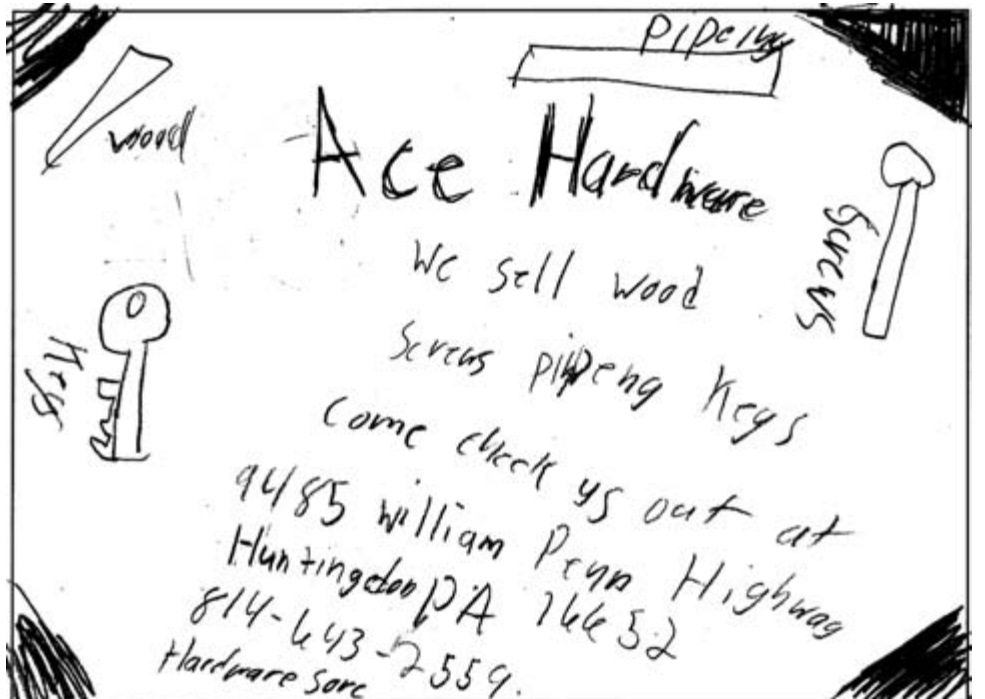 pipeing
wood
Ace Hardware
screws
We sell wood
Screws pippeng Keys
Keys
Come check us out at
9485 William Penn Highway
Huntingdon PA 16652
814-643-2559.
Hardware Sore